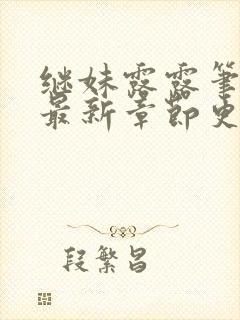 继妹露露笔
最新章节史
段繁昌